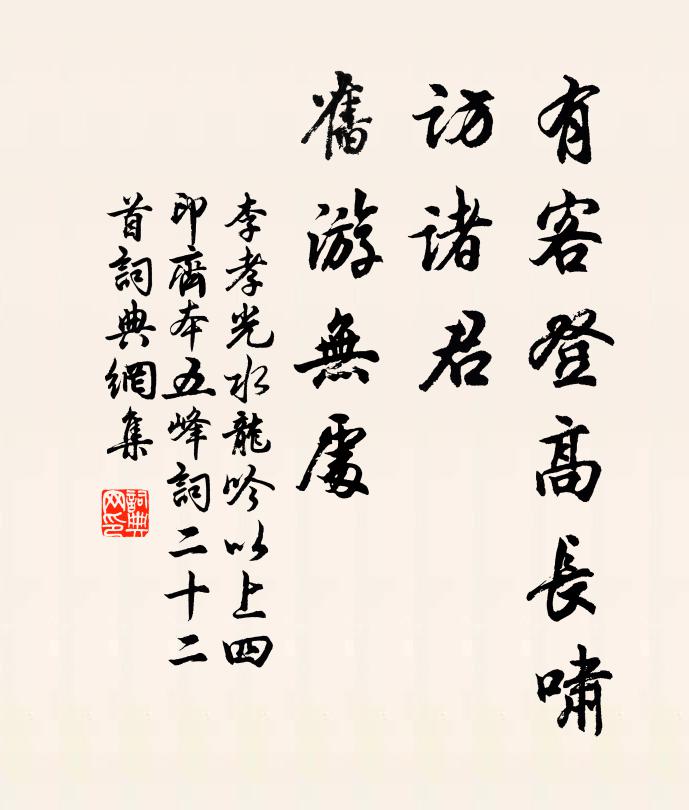 有客登高長嘯
訪諸君
舊游無處
李孝光水龍吟以上四
印齋本五峰詞二十二
首詞典網集
詞典
网印